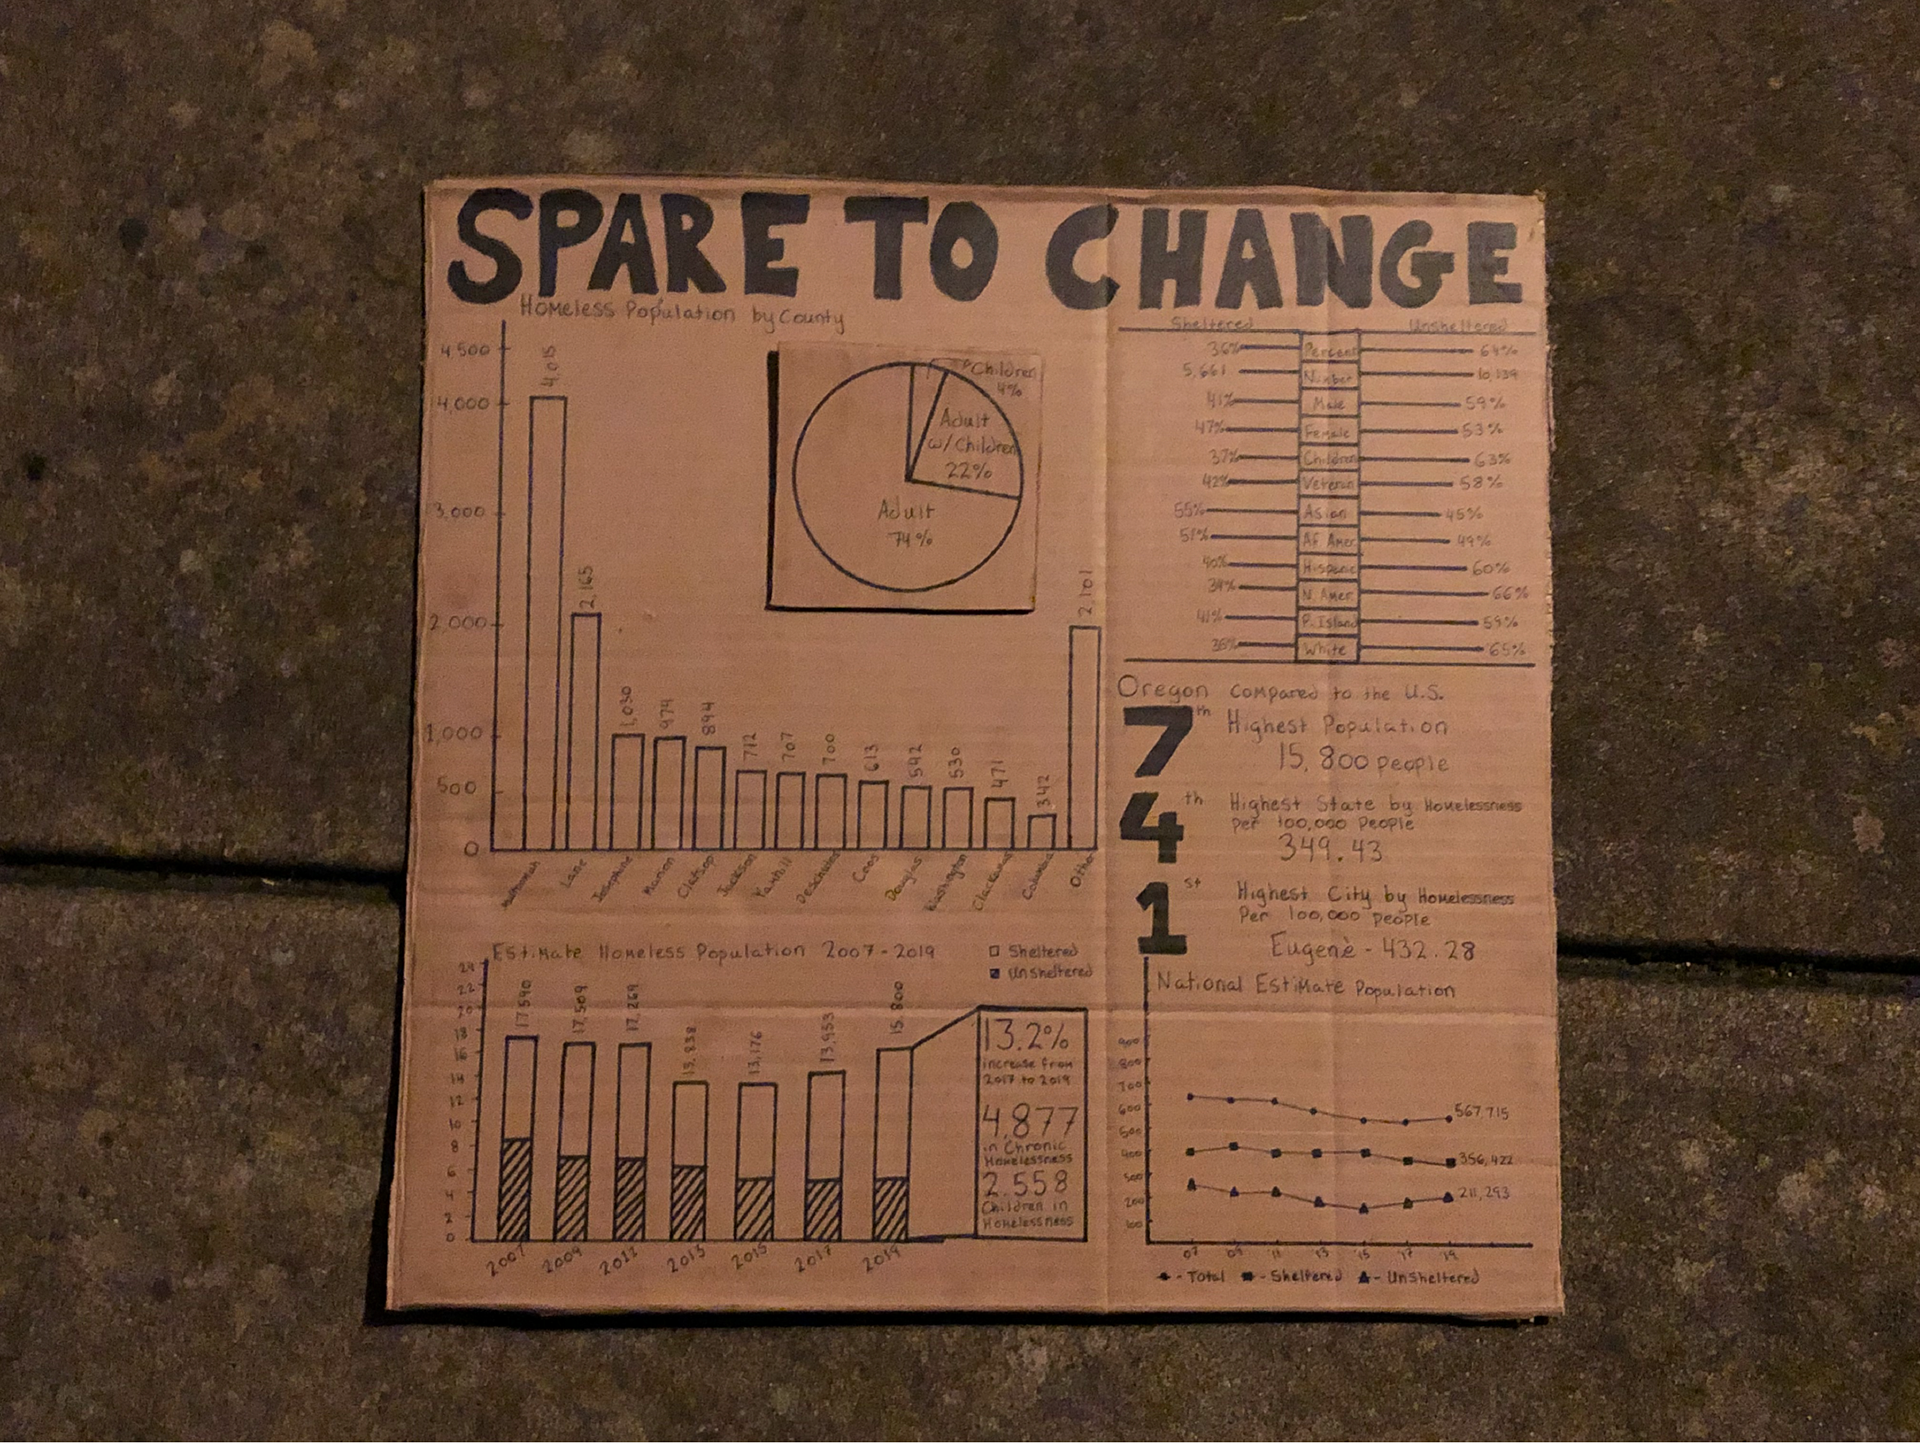 SPARE TO CHANGE
Homeless Population by County
4500
4,000
3,000
2,000
1,000
500
0
4,015
2,165
1,030
974
894
712
707
700
613
542
530
471
342
2,101
Lane
Josephine
Marion
Clatsop
Jackson
Deschutes
Coos
Douglas
Washington
Clackamas
Columbia
Other
Children
4%
Adult
w/Children
22%
Adult
74%
Sheltered Unsheltered
36% Percent 64%
5,661 Number 10,139
41% Male 59%
47% Female 53%
37% Children 63%
42% Veteran 58%
55% Asian 45%
51% Af Amer 49%
40% Hispanic 60%
34% N. Amer 66%
41% P. Island 59%
35% White 65%
Oregon Compared to the U.S.
7th Highest Population
15,800 people
4th Highest State by Homelessness
Per 100,000 People
349.43
1st Highest City by Homelessness
Per 100,000 people
Eugene - 432.28
Estimate Homeless Population 2007-2019
Sheltered
Unsheltered
24
22
20
18
16
14
12
10
8
6
4
2
0
17,590
17,509
17,269
13,176
13,953
15,800
2007
2009
2013
2015
2017
2019
13.2%
increase from
2017 to 2019
4,877
in Chronic
Homelessness
2.558
Children in
Homelessness
National Estimate Population
900
800
700
600
500
400
200
100
567,715
356,422
211,293
07 09 11 13 15 17 19
- Total - Sheltered - Unsheltered